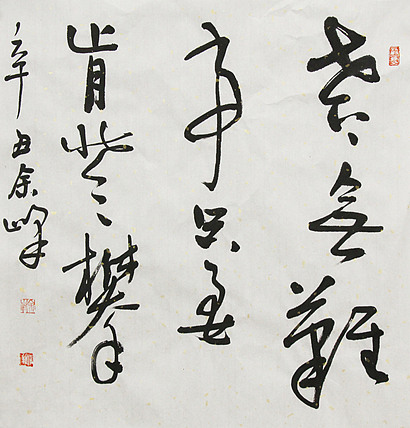 世上無難
事只要
肯登攀
辛丑余峰